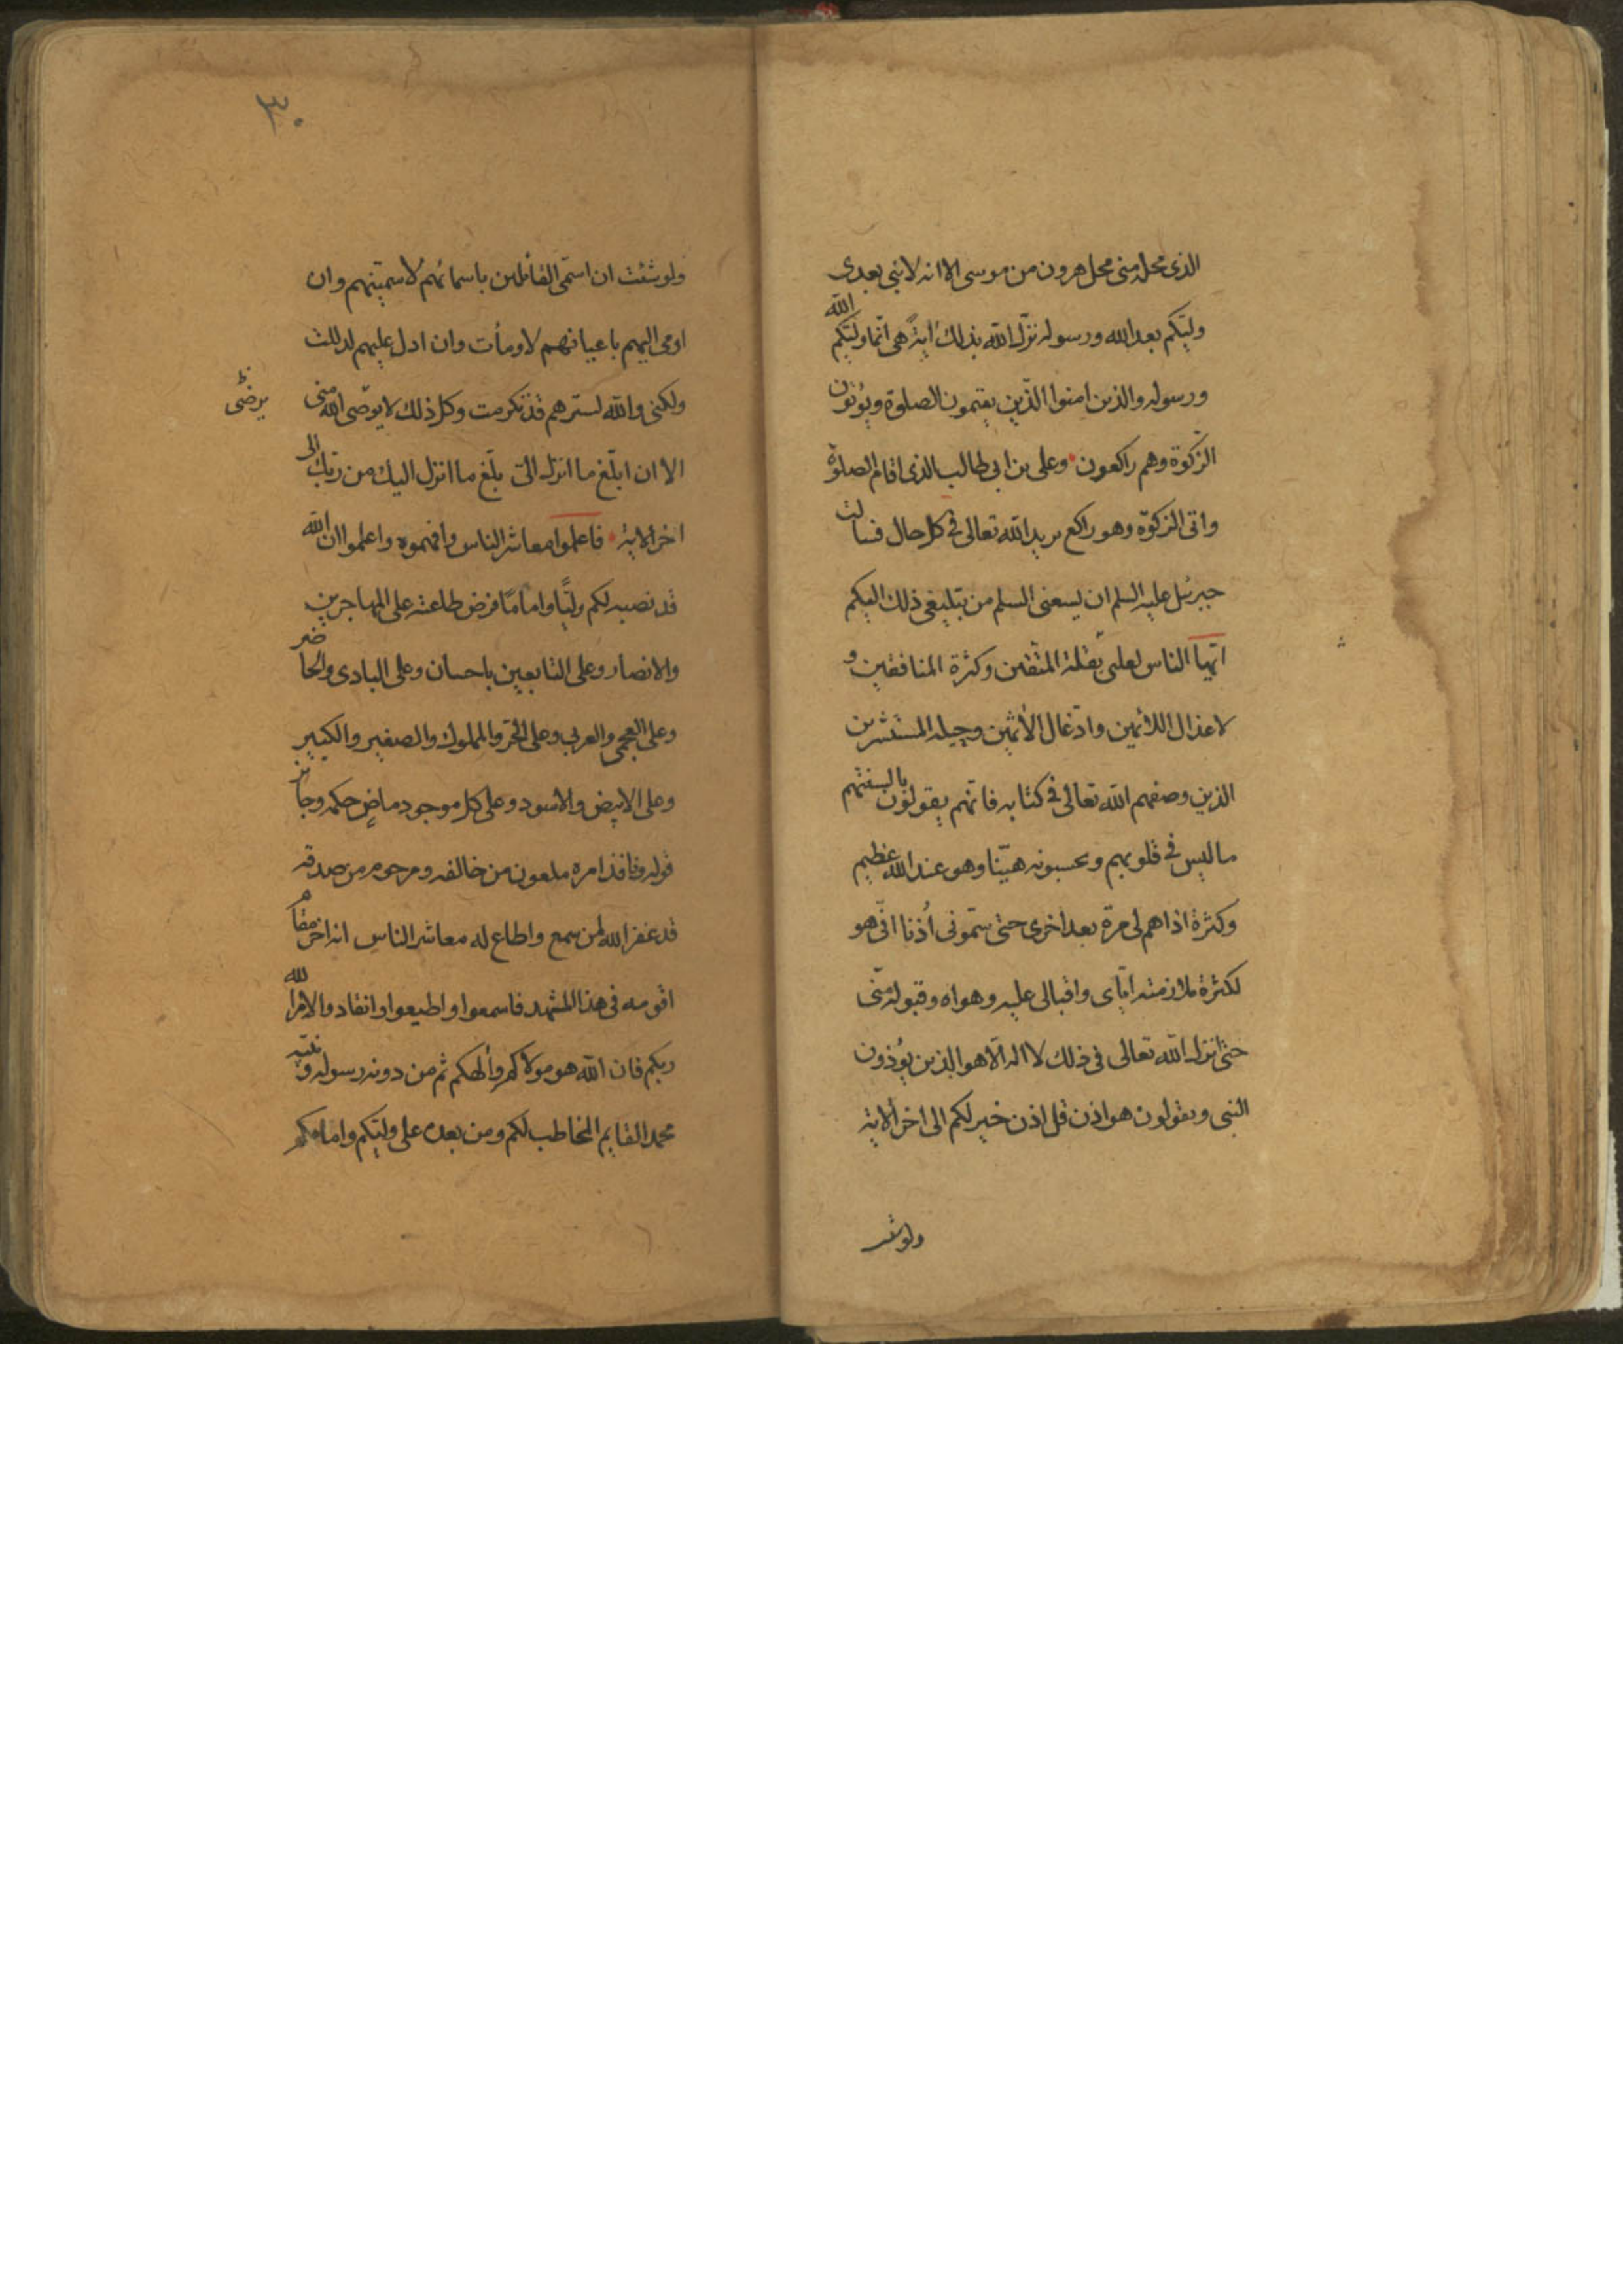 الذى محله منى محل هرون من موسى الا انه لا نبى بعدى
وليّكم بعد الله ورسوله نزّل الله بذلك اية هى انّما وليّكم الله
ورسوله والذين امنوا الّذين يقيمون الصلوة ويؤتون
الزكوة وهم راكعون وعلى بن ابى طالب الذى اقام الصلوة
واتى الزكوة وهو راكع يريد الله تعالى فى كل حال فسالت
جبرئيل عليه السلم ان يسعنى السلم من تبليغى ذلك اليكم
ايّها الناس لعلمى بقلة المتّقين وكثرة المنافقين و
لاعذال اللائمين وادغال الأثمين وحيله المستشرين
الذين وصفهم الله تعالى فى كتابه فانهم يقولون بالسنتهم
ما ليس فى قلوبهم ويحسبونه هيّنا وهو عند الله عظيم
وكثرة اذاهم لى مرة بعد اخرى حتى سمّونى اُذنا انّى هو
لكثرة ملازمته ايّاى واقبالى عليه وهواه وقبوله منّى
حتى انزل الله تعالى فى ذلك لا اله الّا هو الذين يؤذون
النبى ويقولون هو اذن قل اذن خير لكم الى اخر الاية
ولو شئت
٣٠
ولو شئت ان اسمّى القائلين باسمائهم لاسميتهم وان
اومى اليهم باعيانهم لاومأت وان ادل عليهم لدللت
ولكنى والله لسترهم قد تكرمت وكل ذلك لا يوضى الله منى
يرضى
الا ان ابلّغ ما انزله الىّ بلّغ ما انزل اليك من ربّك الى
اخر الاية فاعلموا معاشر الناس وافهموه واعلموا ان الله
قد نصبه لكم وليّا واماما فرض طاعته على المهاجرين
والانصار وعلى التابعين باحسان وعلى البادى والحاضر
وعلى العجمى والعربى وعلى الحرّ والمملوك والصغير والكبير
وعلى الابيض والاسود وعلى كل موجود ماضٍ حكمه وجائز
قوله ونافذ امره ملعون من خالفه ومرحوم من صدقه
قد غفر الله لمن سمع واطاع له معاشر الناس انه اخر مقام
اقومه فى هذا المشهد فاسمعوا واطيعوا وانقادوا لامر الله
ربكم فان الله هو مولاكم والهكم ثم من دونه رسوله ونبيّه
محمد القايم المخاطب لكم ومن بعده على وليّكم وامامكم